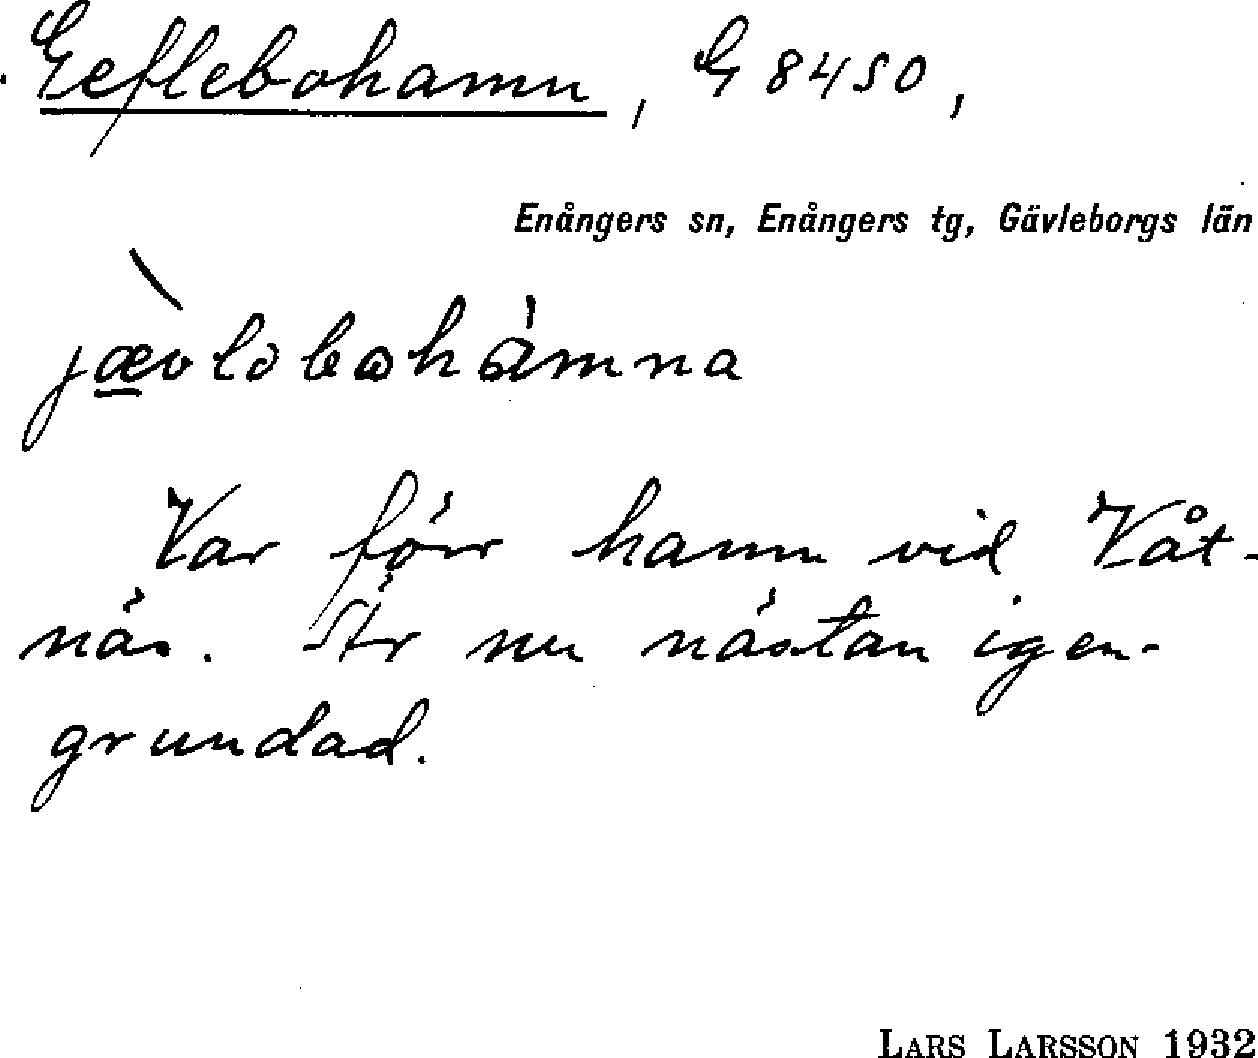 Geflebohamn, G 8450,
Enångers sn, Enångers tg, Gävleborgs län
jæ̀vləbωhámna
Var förr hamn vid Våt-
näs. Är nu nästan igen-
grundad.
LARS LARSSON 1932